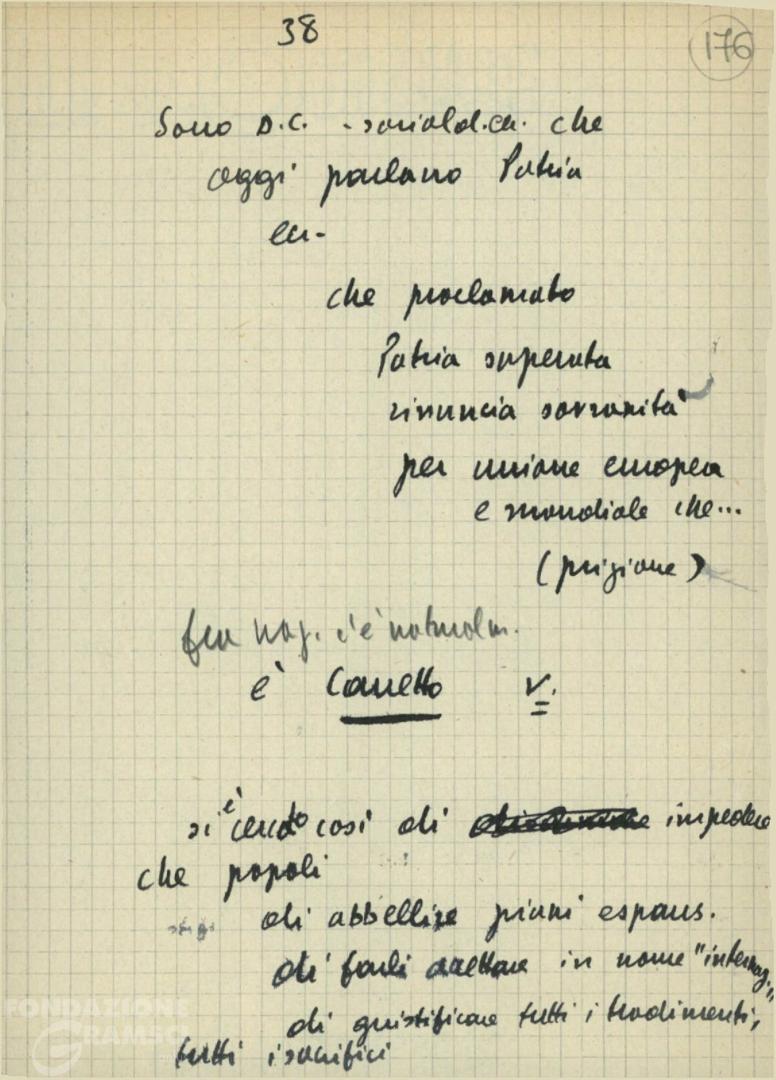 38
176
Sono D.C. - sociald.ch. che
oggi parlano Patria
ecc-
che proclamato
Patria superata
rinuncia sovranità
per unione europea
e mondiale che...
(prigione)
fra naz. c'è naturalm.
è Canetto v.
si è cercato così di impedire
che popoli
di abbellire piani espans.
di farli accettare in nome "internaz."
di giustificare tutti i tradimenti,
tutti i sacrifici
FONDAZIONE
GRAMSCI